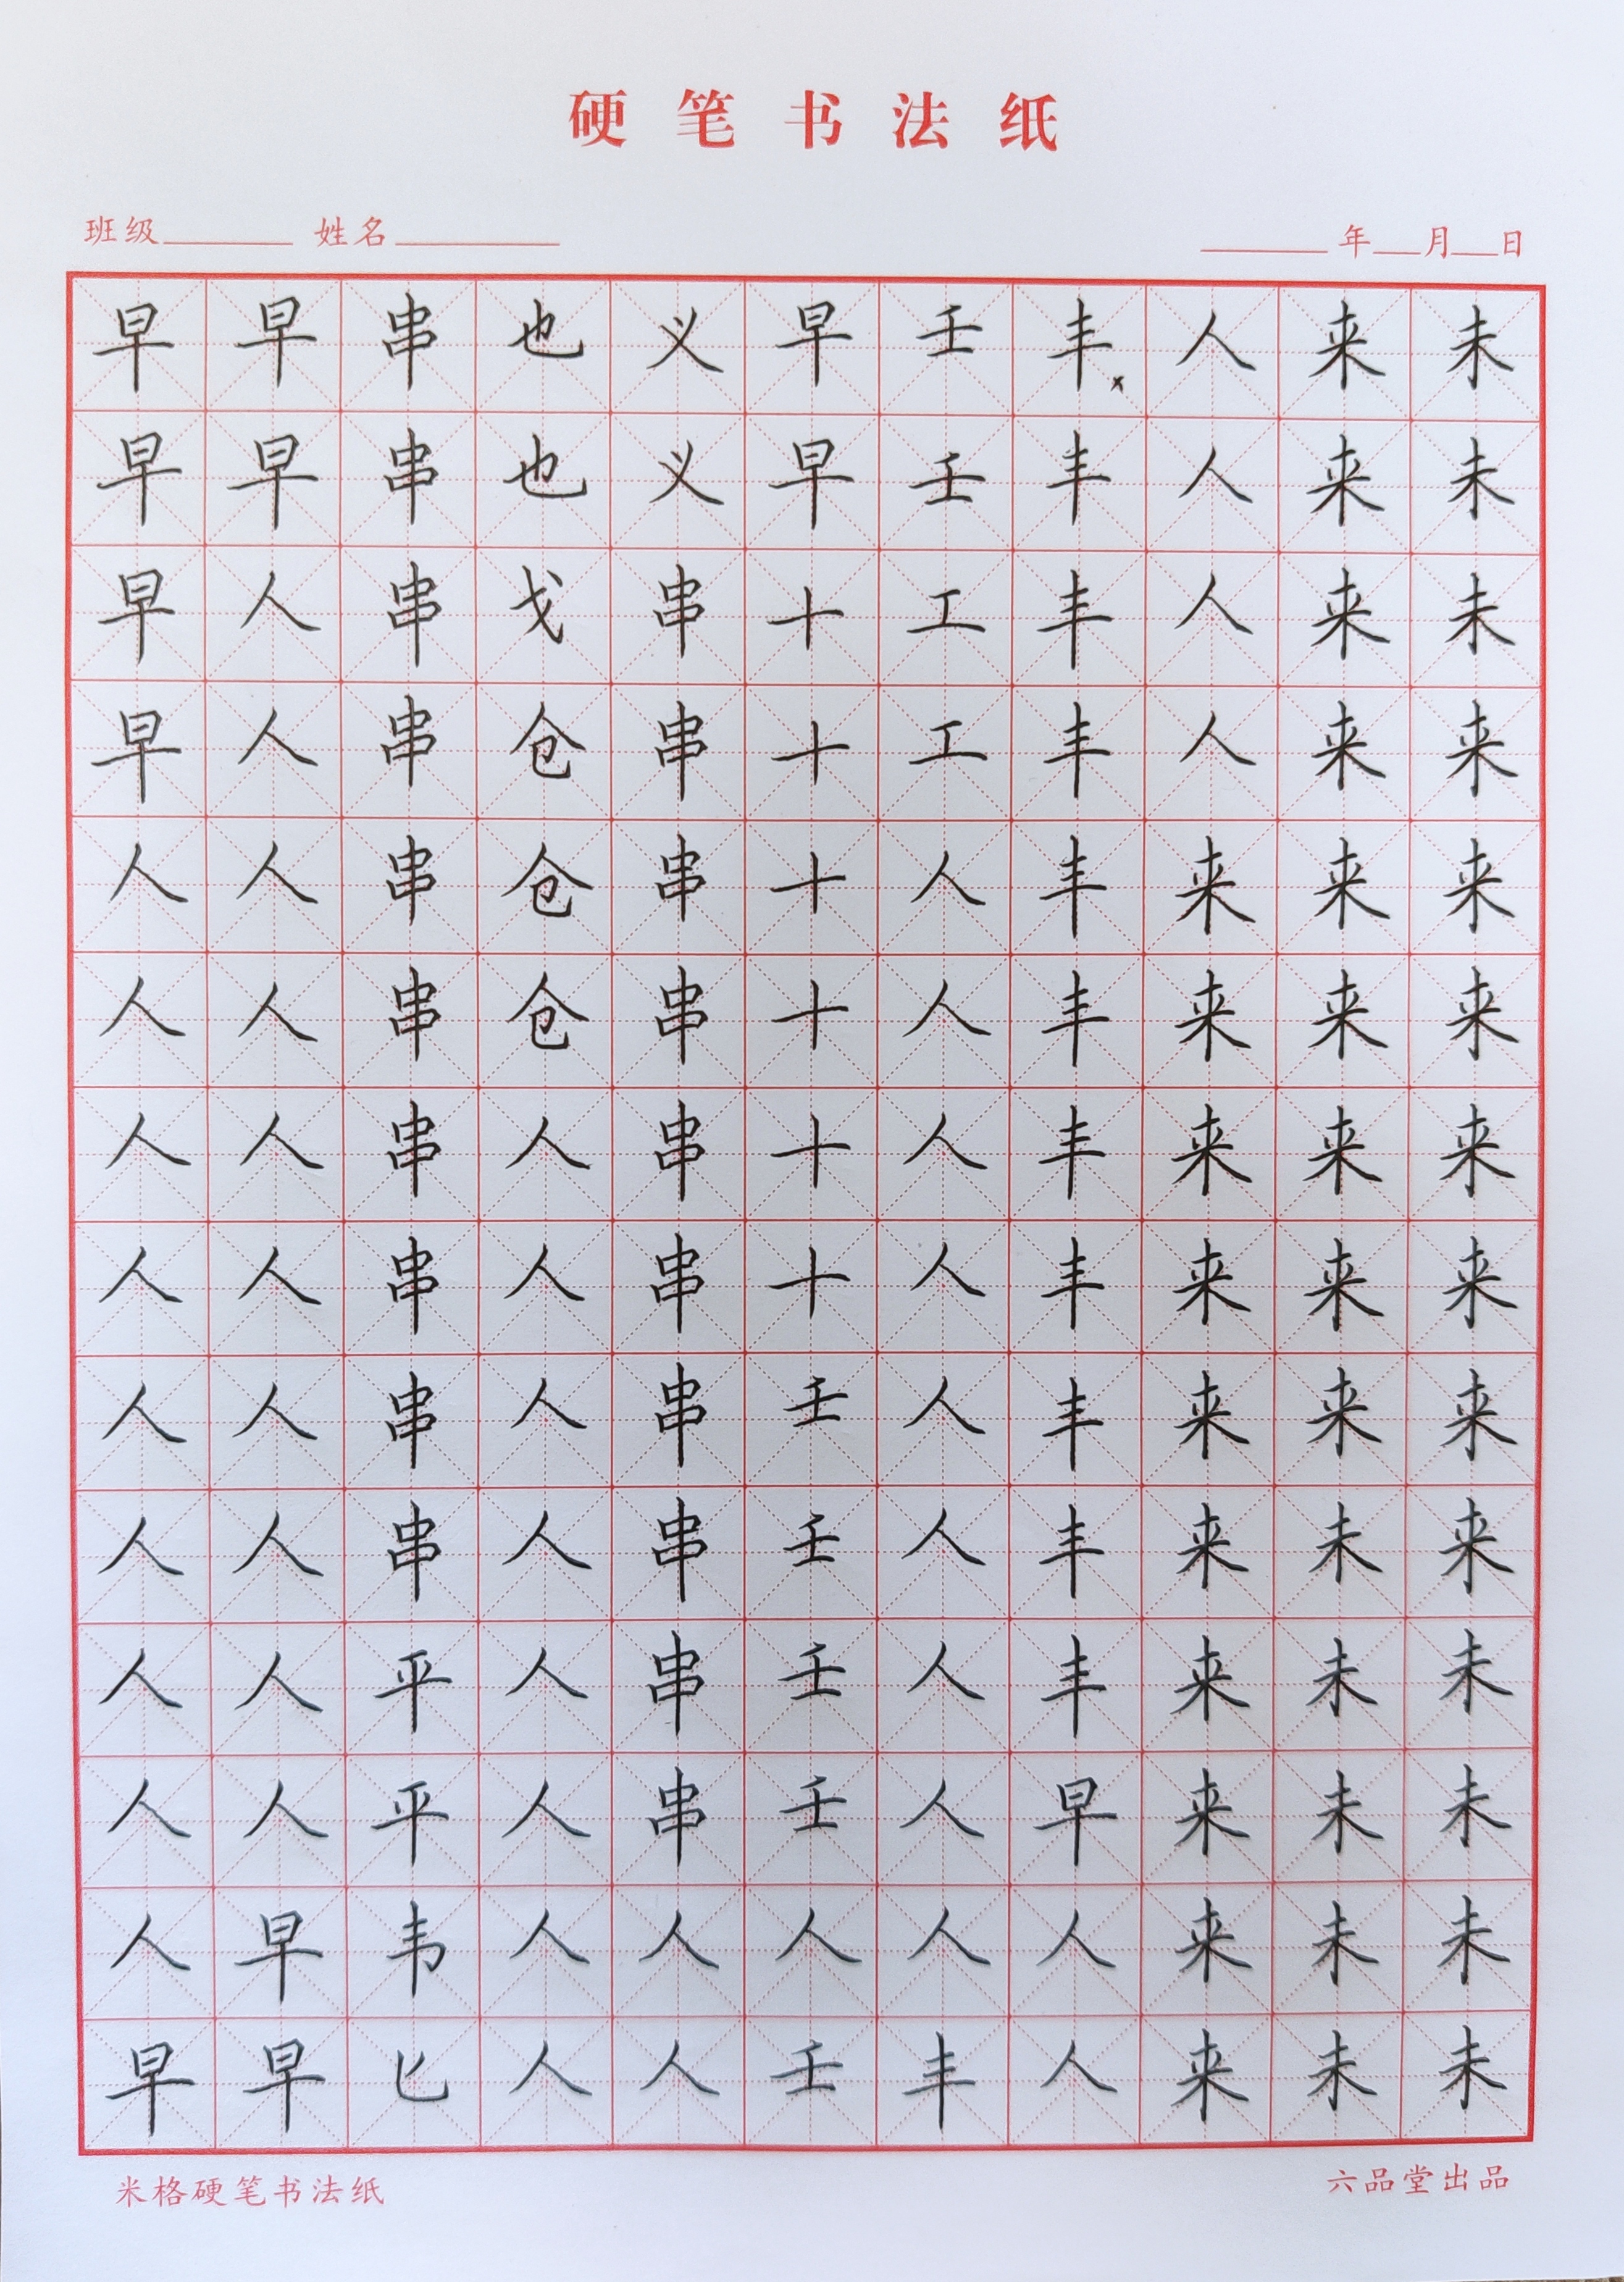 硬笔书法纸
班级 姓名 年 月 日
早早串也义早壬丰人来未
早早串也义早壬丰人来未
早人串戈串十工丰人来未
早人串仓串十工丰人来来
人人串仓串十人丰来来来
人人串仓串十人丰来来来
人人串人串十人丰来来来
人人串人串十人丰来来来
人人串人串壬人丰来来来
人人串人串壬人丰来未来
人人平人串壬人丰来未未
人人平人串壬人早来未未
人早韦人人人人人来未未
早早匕人人壬丰人来未未
米格硬笔书法纸 六品堂出品